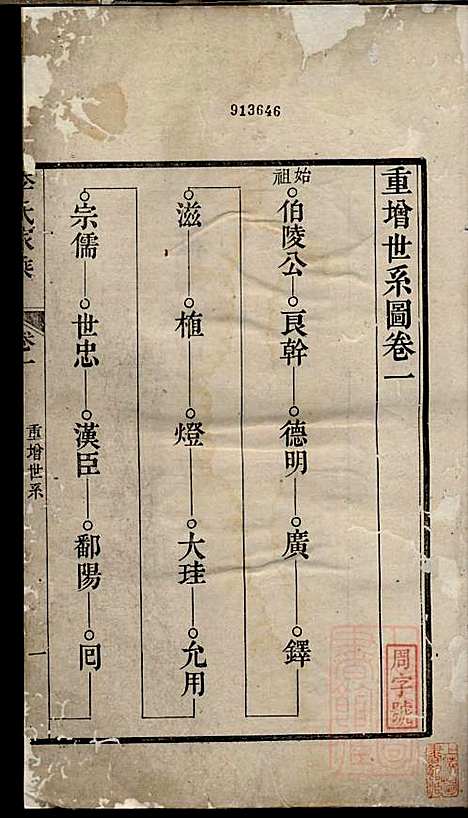 913646
重增世系圖卷一
始祖
伯陵公 良幹 德明 廣 鐸
滋 植 燈 大珪 允用
宗儒 世忠 漢臣 鄱陽 囘
氏家乘
卷一
重增世系
一
周字號